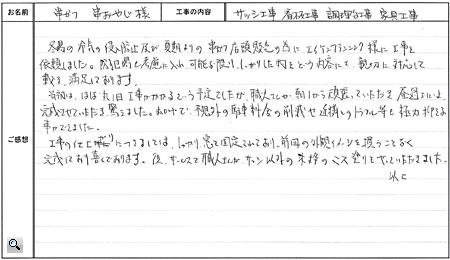 お名前 串かつ 串おやじ 様 工事の内容 サッシ工事 看板工事 調理台工事 家具工事
ご感想
冬場の冷気の侵入防止及び 夏期よりの 串かつ店頭販売の為に エイケンプランニング様に工事を
依頼しました。 防犯問も考慮に入れ 可能な限り、しっかりした物をという内容にて 親切に対応して
戴き、満足しております。
当初は、ほぼ丸1日 工事がかかるという予定でしたが、職人さんが 朝1から頑張っていただき 昼過ぎには
完成させていただき 驚きました。おかげで、予想外の駐車料金の削減や近隣とのトラブル等も極力おさえる
事ができました。
工事の仕上がりにつきましては、しっかり 窓も固定されており、前回の外観イメージを損うことなく
完成しており 喜んでおります。後、サービスで職人さんが サッシ以外の 朱枠の ペンキ塗りもしていただきました。
以上